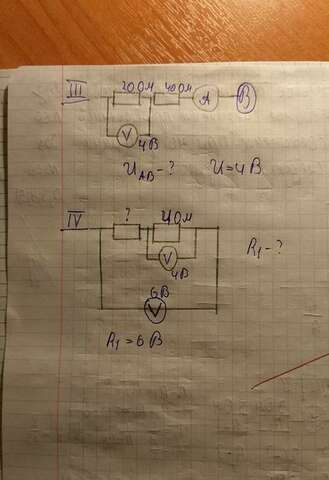 III
20 Ом 40 Ом
A B
V
4 В
U_AB - ? U = 4 В
IV
? 4 Ом
V
4 В
R₁ - ?
6 В
V
R₁ = 6 В